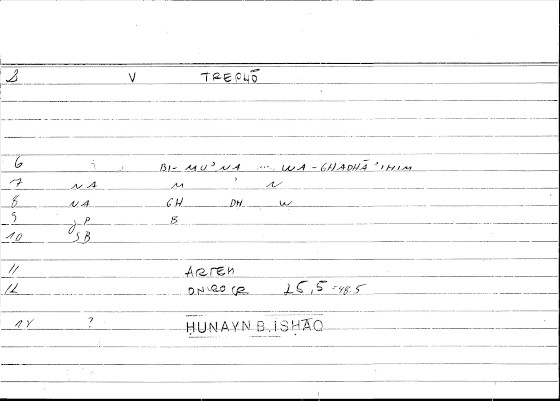 2 V TREPHŌ
6 BI-MU'NA ... WA-GHADHĀ'IHIM
7 NA M ' N
8 NA GH DH W
9 JP B
10 SB
11 ARTEM
12 ONIROCR 15,5 = 48.5
14 ? HUNAYN B. ISHAQ